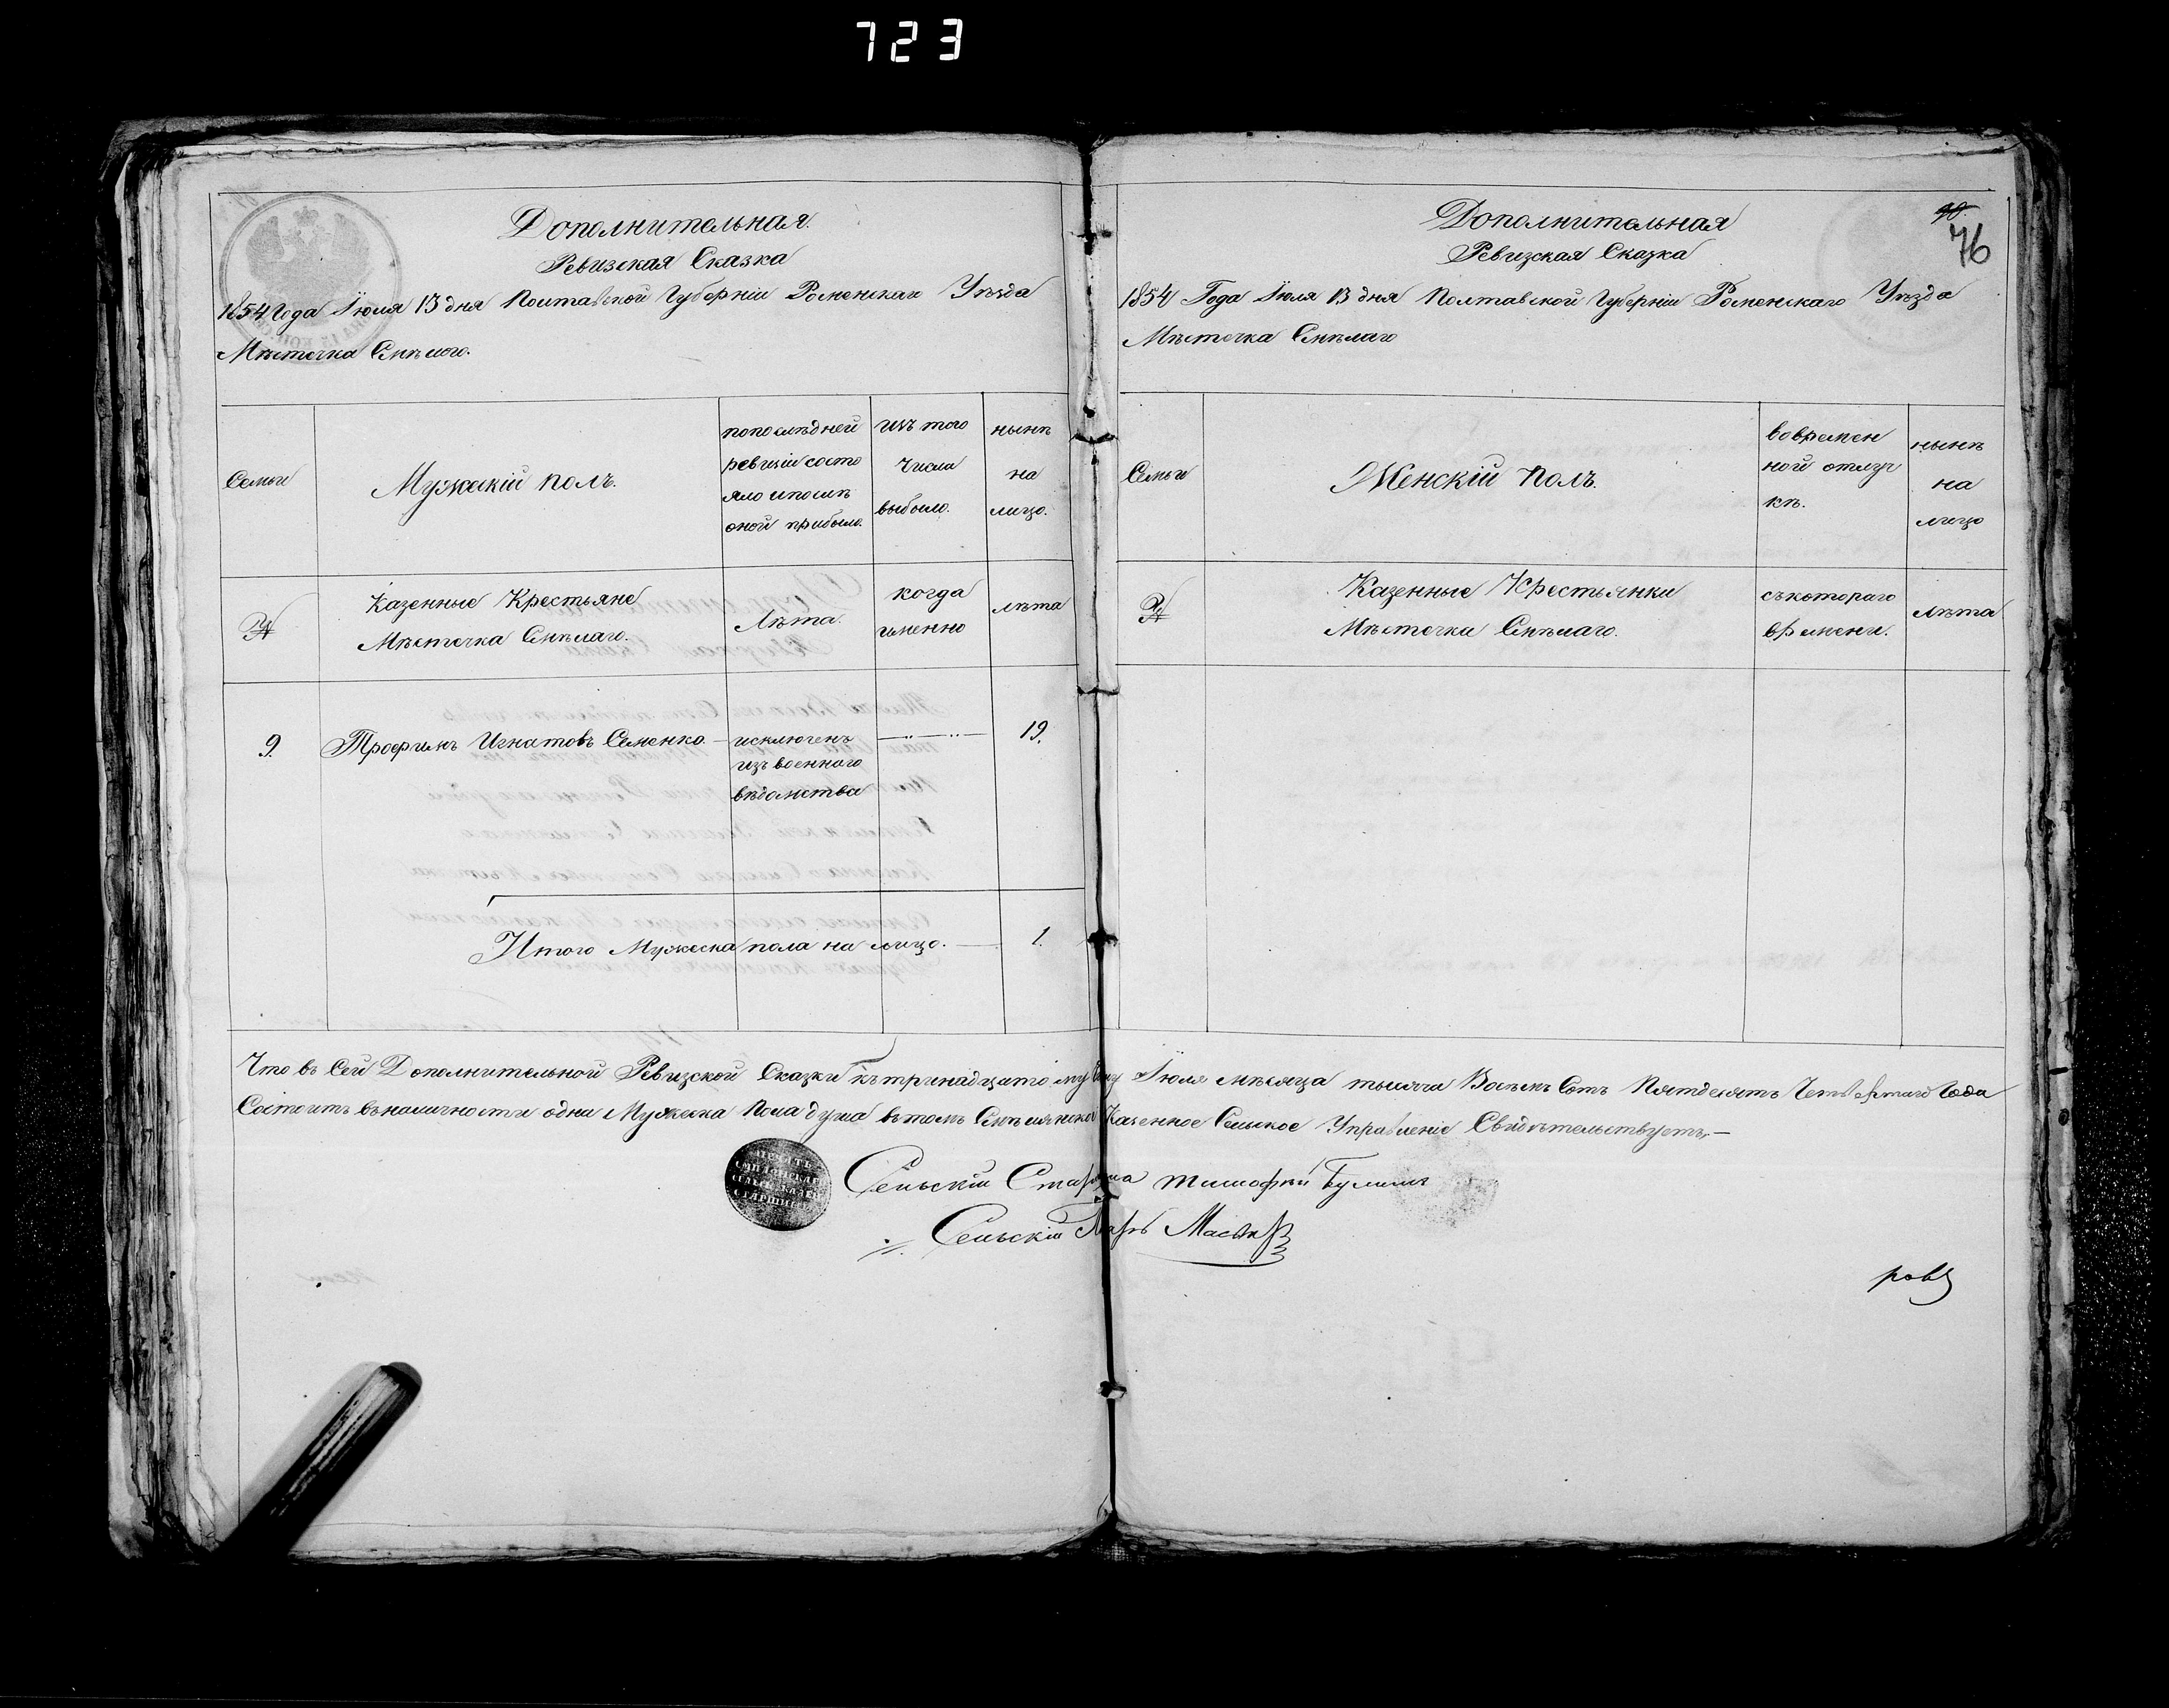 723
Дополнительная
Ревизская Сказка
1854 Года Іюля 13 дня Полтавской Губерніи Роменскаго Уѣзда
Мѣстечка Смѣлаго.
Семьи
Мужескій полъ.
попослѣдней
ревизіи состо
яло ипослѣ
оной прибыло.
изъ того
числа
выбыло.
нынѣ
на
лицо.
№
Казенные Крестьяне
Мѣстечка Смѣлаго.
Лѣта.
когда
именно
лѣта
9.
Трофимъ Игнатовъ Семенко
исключенъ
изъ военного
вѣдомства
19.
Итого Мужеска пола на лицо.
1.
76
Дополнительная
Ревизская Сказка
1854 Года Іюля 13 дня Полтавской Губерніи Роменскаго Уѣзда
Мѣстечка Смѣлаго
Семьи
Женскій полъ.
вовремен
ной отлуч
кѣ.
нынѣ
на
лицо
№
Казенные Крестьянки
Мѣстечка Смѣлаго.
съкотораго
времени.
лѣта
Что въ Сей Дополнительной Ревизской Сказки къ тринадцатому Іюля мѣсяца тысяча Восемь Сотъ Пятдесятъ Четвертаго Года
Состоитъ въналичности одна Мужеска Пола душа вътомъ Казенное Сельское Управленіе Свидѣтельствуетъ.
Сельскій Старшина Тимофѣй
Сельскій